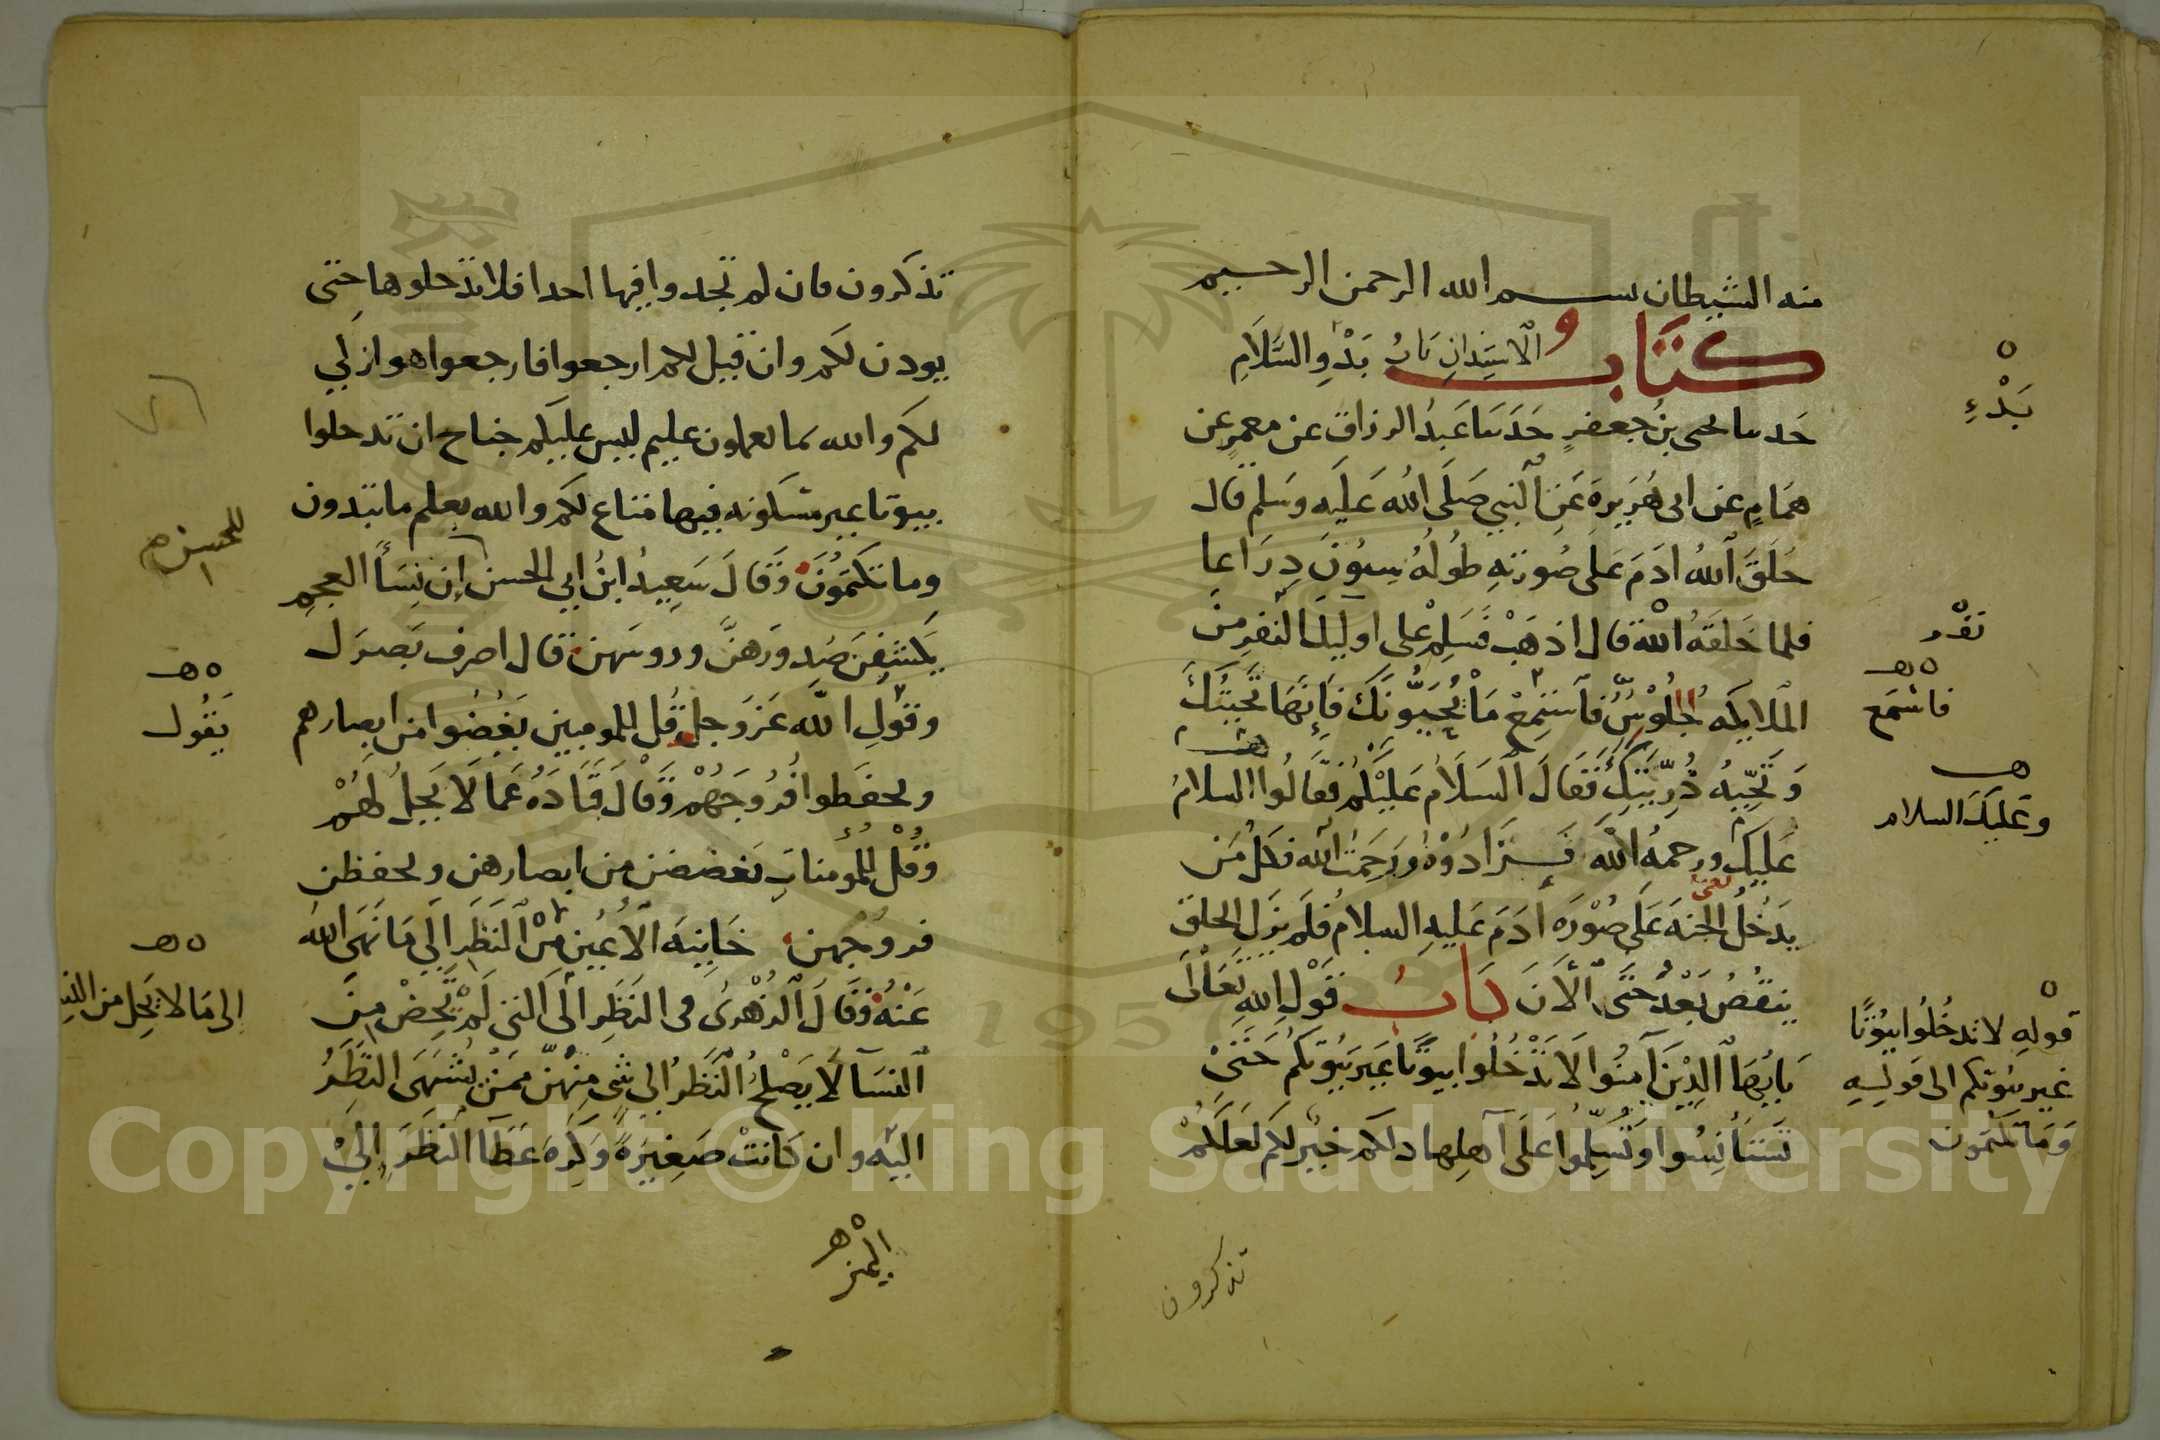 منه الشيطان بسم الله الرحمن الرحيم
كتاب الاستيذان باب بدو السلام
بدء
حدثنا يحيى بن جعفر حدثنا عبد الرزاق عن معمر عن
همام عن ابى هريرة عن النبي صلى الله عليه وسلم قال
خلق الله ادم على صورته طوله ستون ذراعا
فلما خلقه الله قال اذهب فسلم على اوليك النفر من
نفر
الملايكه الجلوس فاستمع ما يحيونك فانها تحيتك
فاسمع
وتحيه ذريتك فقال السلام عليكم فقالوا السلام
وعليك السلام
عليك ورحمه الله فزادوه ورحمت الله فكل من
يدخل الجنه يعنى على صورة ادم عليه السلام فلم يزل الخلق
ينقص بعد حتى الآن باب قول الله تعالى
قوله لا تدخلوا بيوتا
يايها الذين آمنوا لا تدخلوا بيوتا غير بيوتكم حتى
غير بيوتكم الى قوله
تستأنسوا وتسلموا على اهلها ذلكم خير لكم لعلكم
وما تكتمون
تذكرون
تذكرون فان لم تجدوا فيها احدا فلا تدخلوها حتى
يوذن لكم وان قيل لكم ارجعوا فارجعوا هو ازكي
لكم والله بما تعملون عليم ليس عليكم جناح ان تدخلوا
بيوتا غير مسكونه فيها متاع لكم والله يعلم ما تبدون
وما تكتمون وقال سعيد ابن ابي الحسن ان نسأ العجم
للحسن
يكشفن صدورهن وروسهن قال اصرف بصرك
وقول الله عز وجل قل للمومنين يغضوا من ابصارهم
يقول
ويحفظوا فروجهم وقال قتاده عما لا يحل لهم
وقل للمؤمنات يغضضن من ابصارهن ويحفظن
فروجهن خاينه الاعين من النظر الي ما نهى الله
عنه وقال الزهرى فى النظر الى التى لم تحض من
الى ما لا يحل من
النسآ لا يصلح النظر الى شى منهن ممن يشتهى النظر
اليه وان كانت صغيرة وكره عطآ النظر الي
Copyright © King Saud University
1957